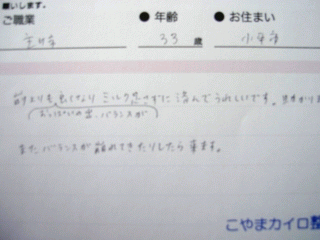 願いします。
ご職業 ● 年齢 ● お住まい
主婦 33 歳 小平市
前よりも良くなり ミルクを足さずに済んでうれしいです。
おっぱいの出、バランスが
また、バランスが崩れてきたりしたら来ます。
こやまカイロ整